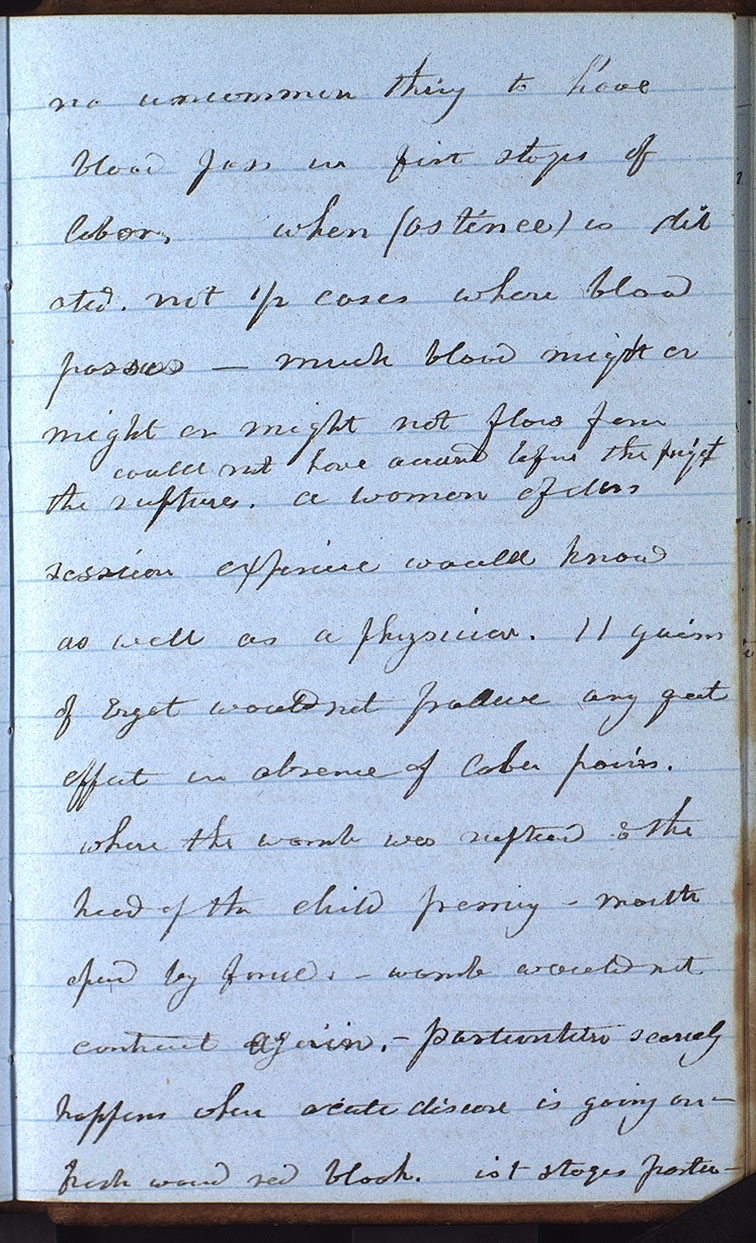 no uncommon thing to have
blood pass in first stages of
labor, when (os tincee) is dil
ated. not 1/2 cases where blood
passes — much blood might or
might or might not flow from
could not have occurred before the
the ruptures. a women of
session experience would know
as well as a physician. 11 grains
of Ergot would not produce any great
effect in absence of labor pains.
where the womb was ruptured & the
head of the child pressing - mouth
opened by force. - womb would not
contract again. - parturition scarcely
happens when acute disease is going on -
fresh wound red blook. ist stages partu-